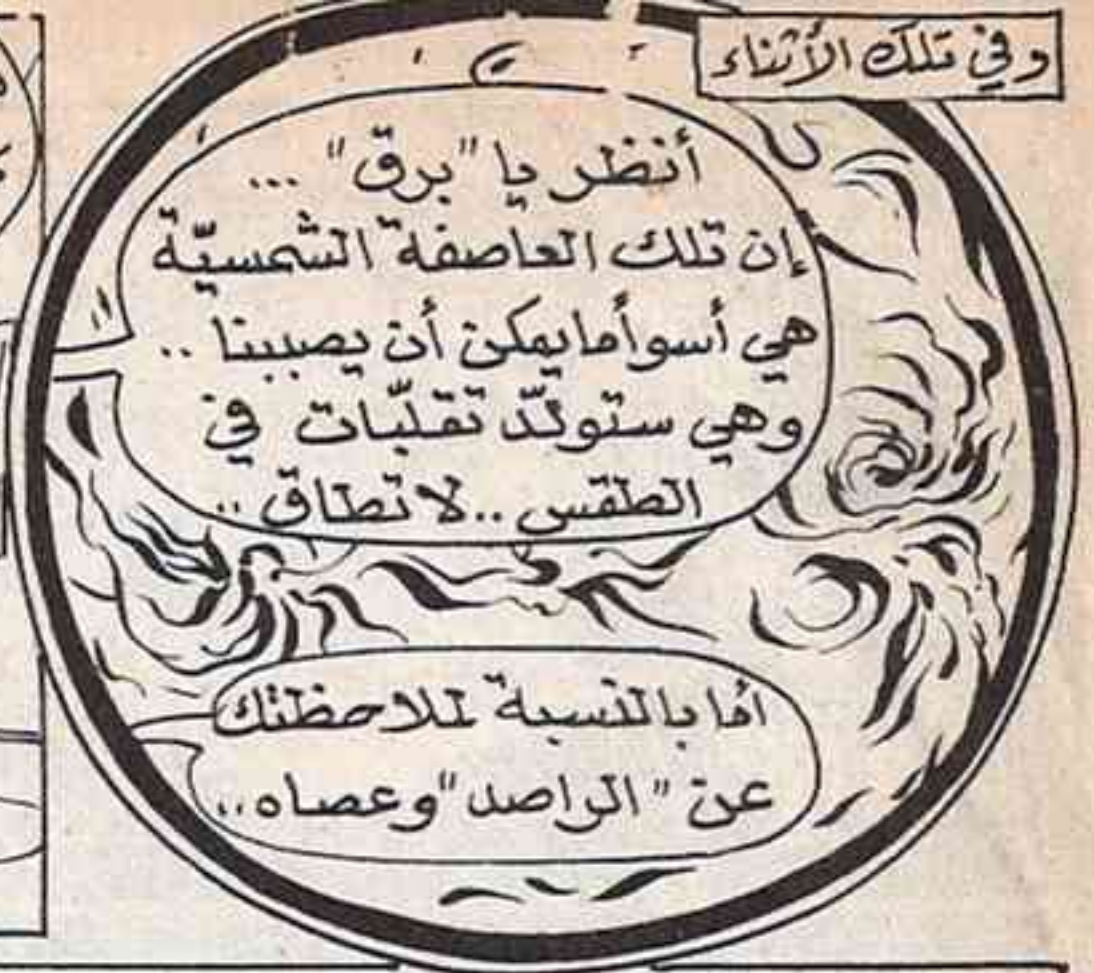 وفي تلك الأثناء
أنظر يا "برق" ...
إن تلك العاصفة الشمسيّة
هي أسوأ ما يمكن أن يصيبنا ..
وهي ستولّد تقلّبات في
الطقس .. لا تطاق ..
أما بالنسبة لملاحظتك
عن "الراصد" وعصاه ..